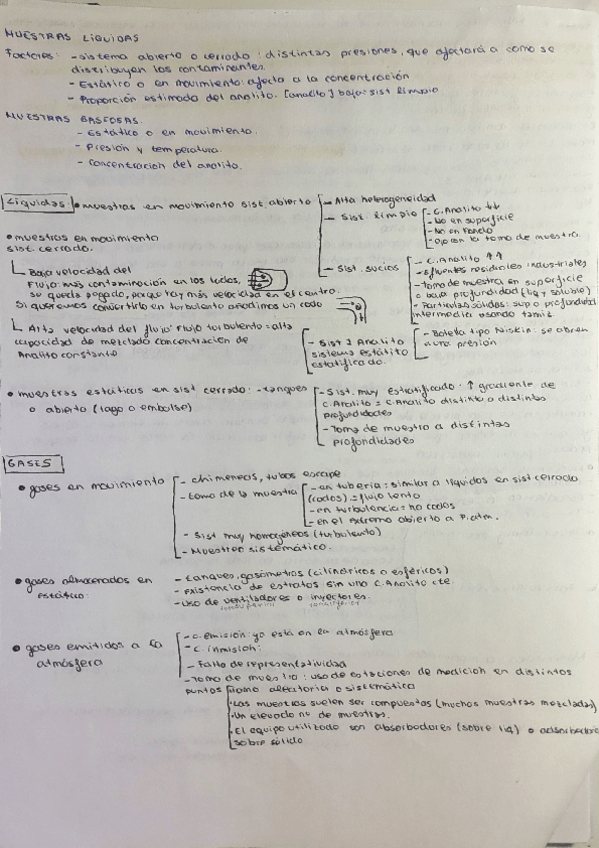 MUESTRAS LIQUIDAS
Factores: - sistema abierto o cerrado: distintas presiones, que afectará a como se
distribuyen los contaminantes.
- Estático o en movimiento: afecta a la concentración
- Proporción estimada del analito. [analito] baja: sist limpio
MUESTRAS GASEOSAS.
- Estático o en movimiento.
- Presión y temperatura.
- Concentración del analito.
Liquidas: • muestras en movimiento sist. abierto
- Alta heterogeneidad
- Sist. limpio
- C. Analito ↓↓
- No en superficie
- No en fondo
- Ojo con la toma de muestra.
- Sist. sucios
- C. Analito ↑↑
- efluentes residuales industriales
- Toma de muestra en superficie
o baja profundidad (liq y soluble)
- Particulas sólidas: sup o profundidad
intermedia usando tamiz.
• muestras en movimiento
sist. cerrado.
Baja velocidad del
flujo: más contaminación en los lados,
se queda pegado, porque hay más velocidad en el centro.
Si queremos convertirlo en turbulento añadimos un codo
Alta velocidad del flujo: flujo turbulento: alta
capacidad de mezclado concentración de
Analito constante
- Sist y Analito
sistema estático
estratificado.
- Botella tipo Niskin: se abren
a una presión
• muestras estáticas en sist cerrado: - tanques
o abierto (lago o embalse)
- Sist. muy estratificado: ↑ gradiente de
C. Analito = C. Analito distinta a distintas
profundidades
- Toma de muestra a distintas
profundidades
GASES
• gases en movimiento
- chimeneas, tubos escape
- toma de la muestra
- en tubería: similar a líquidos en sist cerrado
(codos) = flujo lento
- en turbulencia = no codos
- en el extremo abierto a P. atm.
- Sist muy homogéneos (turbulento)
- Muestreo sistemático.
• gases almacenados en
estático:
- tanques, gasómetros (cilíndricos o esféricos)
- Existencia de estratos sin una C. Analito cte.
- Uso de ventiladores o inyectores.
• gases emitidos a la
atmósfera
- C. emisión: ya está en en atmósfera
- C. inmisión:
- Falta de representatividad
- Toma de muestra: uso de estaciones de medición en distintos
puntos
Toma aleatoria o sistemática
Las muestras suelen ser compuestas (muchas muestras mezcladas)
Un elevado nº de muestras.
El equipo utilizado son absorbedores (sobre liq) o adsorbedores
sobre sólido